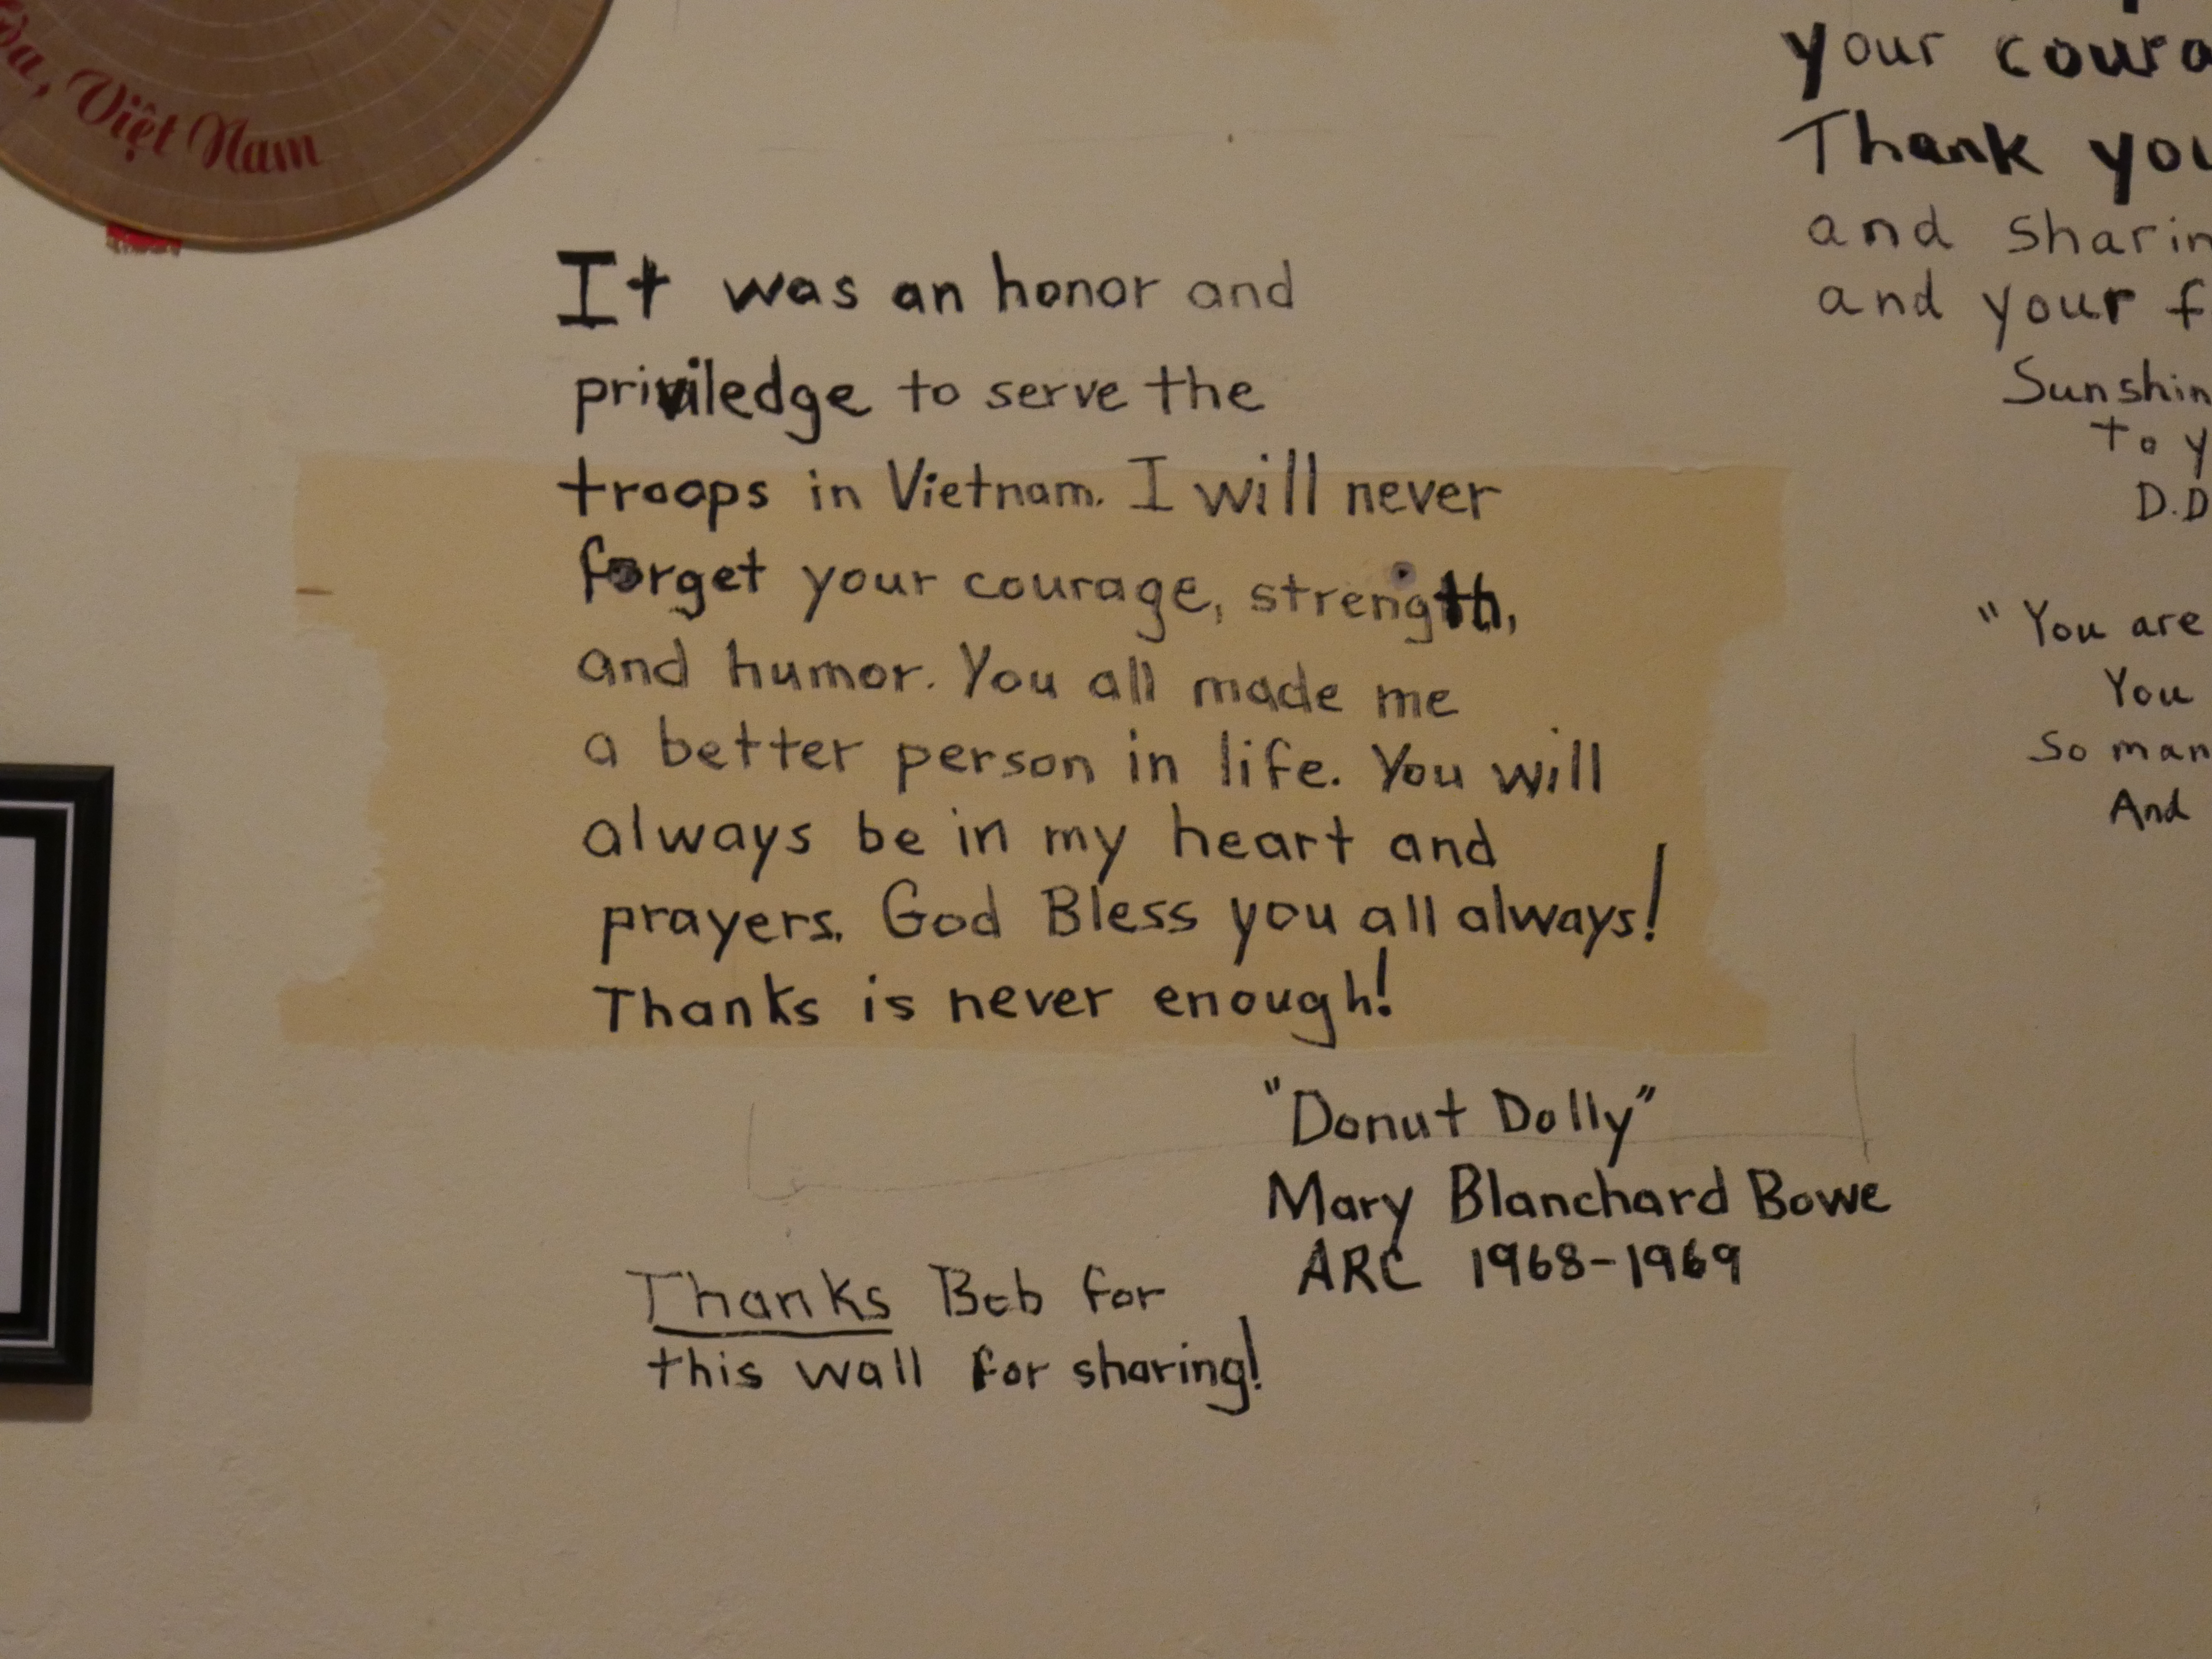 Việt Nam
It was an honor and
priviledge to serve the
troops in Vietnam. I will never
forget your courage, strength,
and humor. You all made me
a better person in life. You will
always be in my heart and
prayers. God Bless you all always!
Thanks is never enough!
"Donut Dolly"
Mary Blanchard Bowe
ARC 1968-1969
Thanks Bob for
this wall for sharing!
your
Thank
and
and your
to
D.D
"You are
You
So
And